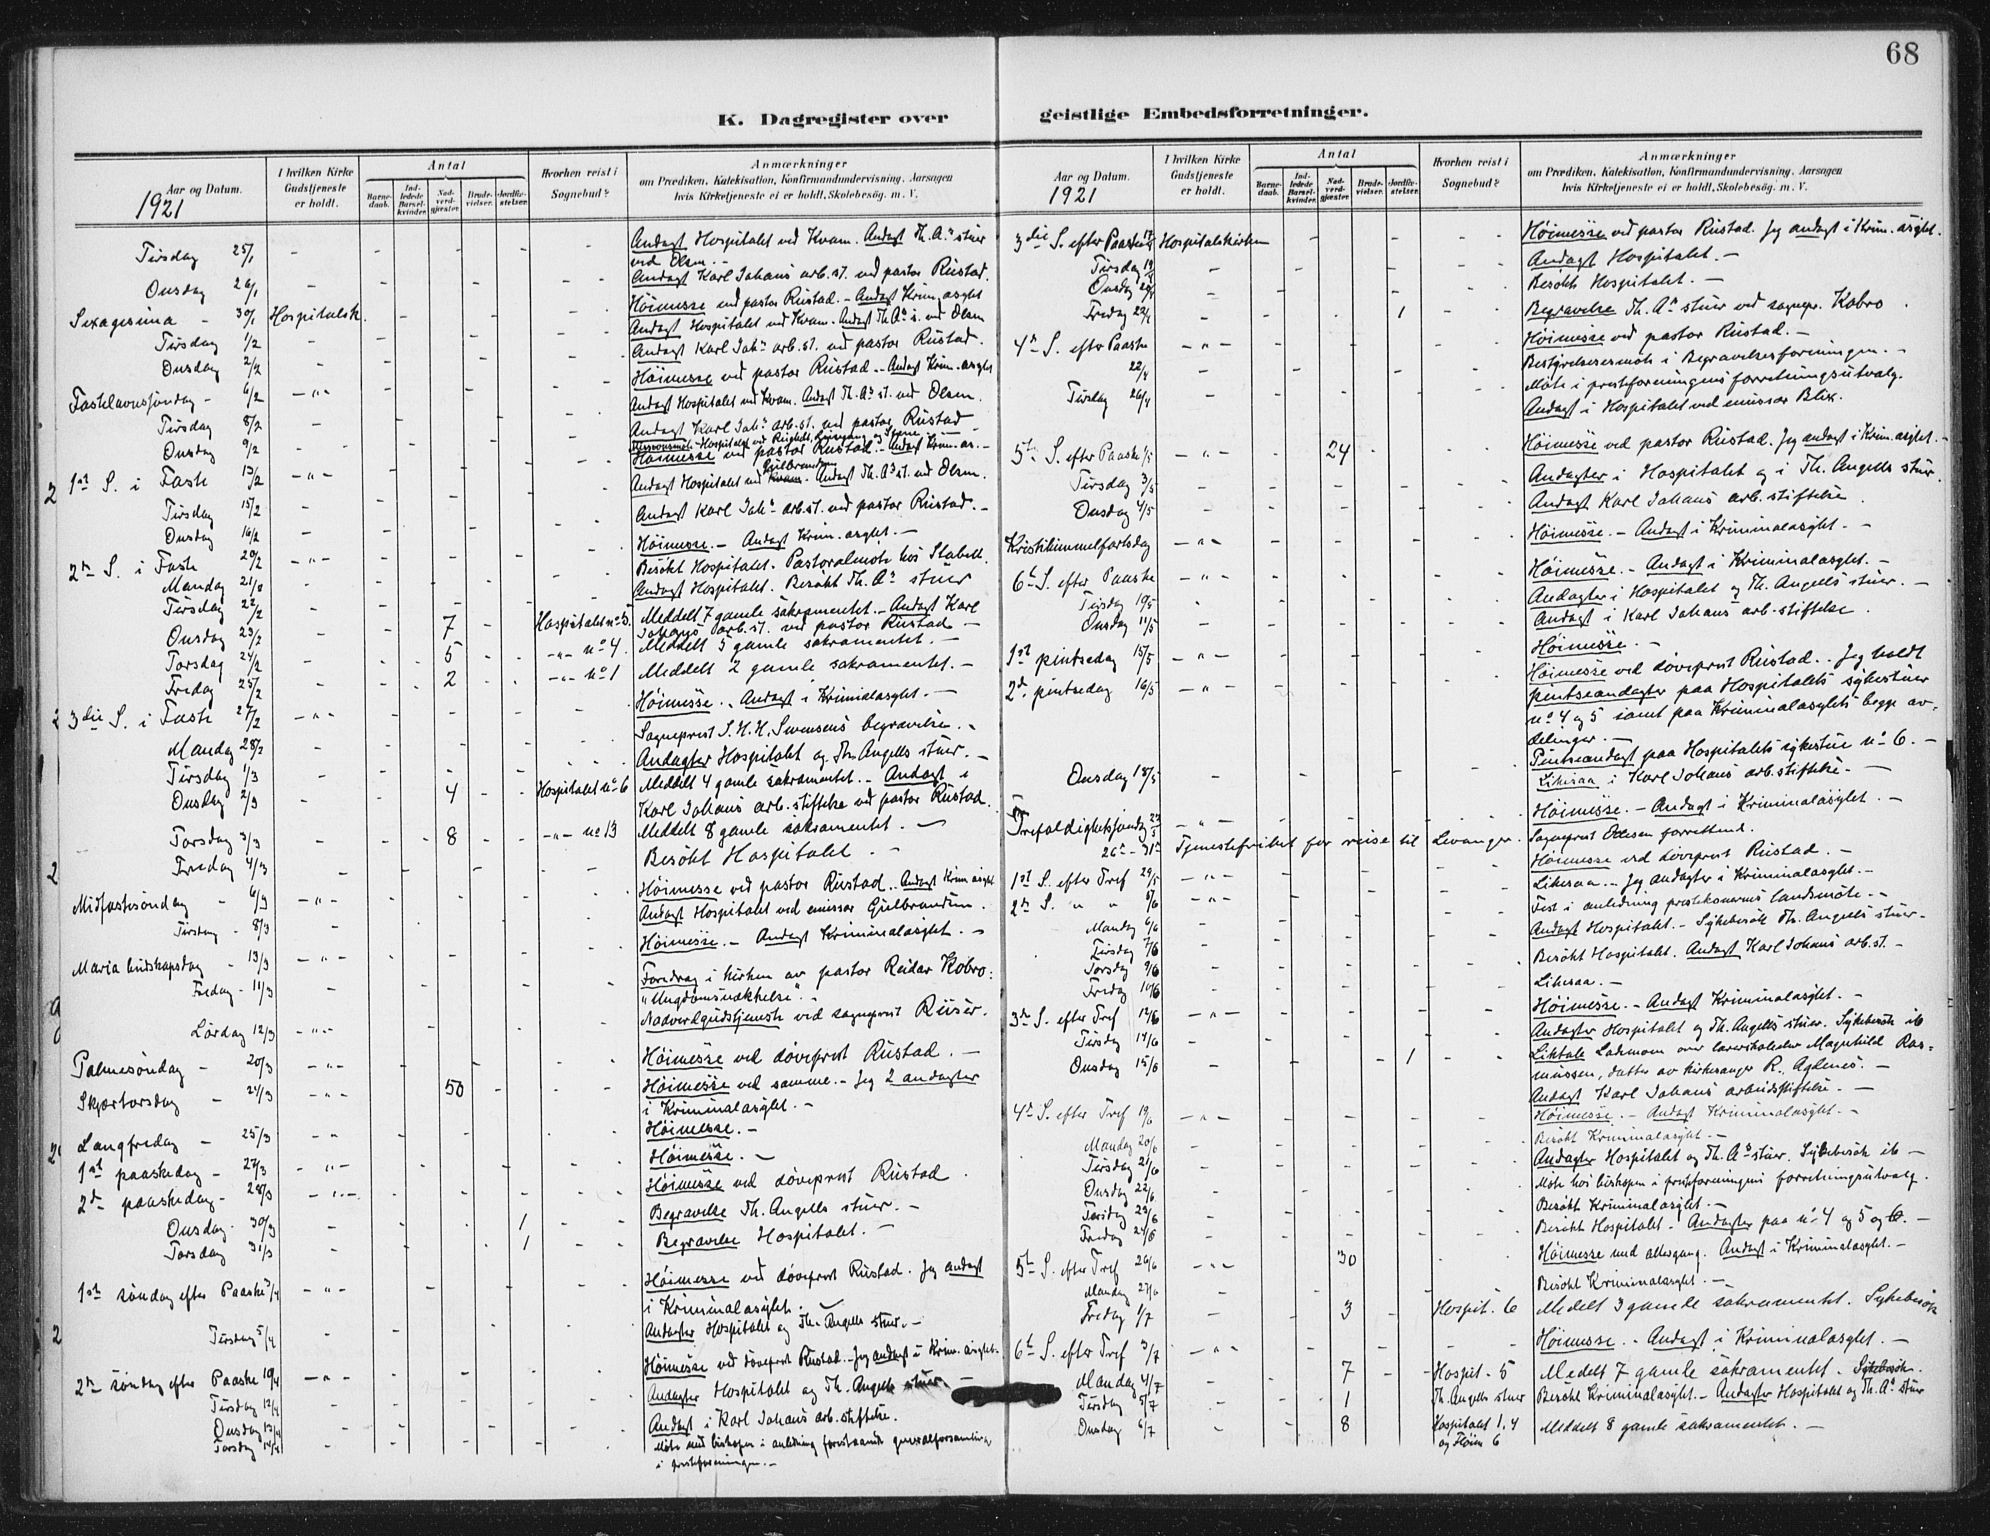 68
K. Dagregister over
Aar og Datum.
I hvilken Kirke Gudstjeneste er holdt.
Antal
Barnedaab.
Indledede Barselkvinder.
Nadverdgjæster.
Brudevielser.
Jordfæstelser.
Hvorhen reist i Sognebud?
Anmærkninger
om Prædiken, Katekisation, Konfirmandundervisning, Aarsagen
hvis Kirketjeneste ei er holdt, Skolebesøg. m. V.
1921
Tirsdag 25/1 Andagt Hospitalet ved Kvam. Andagt Th. A.s stuer
ved Olsen. -
Onsdag 26/1 Andagt Karl Johans arb. st. ved pastor Rustad.
Sexagesima - 30/1 Hospitalsk. Höimesse ved pastor Rustad. - Andagt Krim. asylet
Tirsdag 1/2 Andagt Hospitalet ved Kvam. Andagt Th. As s. ved Olsen
Onsdag 2/2 Andagt Karl Joh.s arb. st. ved pastor Rustad.
Fastelavnssöndag - 6/2 -"- Höimesse ved pastor Rustad. - Andagt Krim. asylet
Tirsdag 8/2 Andagt Hospitalet ved Kvam. Andagt Th. As st. ved Olsen.
Onsdag 9/2 Andagt Karl Joh.s arb. st. ved pastor Rustad -
1st S. i Faste 13/2 -"- Höimesse ved pastor Rustad. - Andagt Krim. as. -
Tirsdag 15/2 Andagt Hospitalet ved Gulbrandsen. Andagt Th. As st. ved Olsen.
Onsdag 16/2 Andagt Karl Joh.s arb. st. ved pastor Rustad. -
2n S. i Faste 20/2 -"- Höimesse. - Andagt Krim. asylet. -
Mandag 21/2 Besökt Hospitalet. Pastoralmöte hos Stabell.
Tirsdag 22/2 Andagt Hospitalet. Besökt Th. As stuer
Onsdag 23/2 7 Hospitalet no 5 Meddelt 7 gamle sakramentet. - Andagt Karl
Johans arb. st. ved pastor Rustad -
Torsdag 24/2 5 -"- no 4. Meddelt 5 gamle sakramentet. -
Fredag 25/2 2 -"- no 1 Meddelt 2 gamle sakramentet. -
3die S. i Faste 27/2 -"- Höimesse. - Andagt i Kriminalasylet. -
Mandag 28/2 Sogneprest S. H. H. Svensens begravelse. -
Tirsdag 1/3 Andagter Hospitalet og Th. Angells stuer. -
Onsdag 2/3 4 Hospitalet no 6 Meddelt 4 gamle sakramentet. - Andagt i
Karl Johans arb. stiftelse ved pastor Rustad.
Torsdag 3/3 8 -"- no 13 Meddelt 8 gamle sakramentet. -
Fredag 4/3 Besökt Hospitalet. -
Midfastesöndag - 6/3 -"- Höimesse ved pastor Rustad. Andagt Krim asylet
Tirsdag - 8/3 Andagt Hospitalet ved emissær Gulbrandsen.
Maria budskapsdag - 13/3 -"- Höimesse. - Andagt Kriminalasylet. -
Fredag - 11/3 Foredrag i kirken av pastor Reidar Kobro:
"Ungdomsvækkelse". -
Lördag 12/3 -"- Nadverdgudstjeneste ved sogneprest Riiser.
Palmesöndag - 20/3 -"- Höimesse ved döveprest Rustad. -
Skjærtorsdag - 24/3 -"- 50 Höimesse ved samme. - Jeg 2 andagter
i Kriminalasylet. -
Langfredag - 25/3 -"- Höimesse. -
1st paaskedag - 27/3 -"- Höimesse. -
2d paaskedag - 28/3 -"- Höimesse ved döveprest Rustad
Onsdag 30/3 1 Begravelse Th. Angells stuer. -
Torsdag 31/3 1 Begravelse Hospitalet. -
1ste söndag efter Paaske 3/4 -"- Höimesse ved döveprest Rustad. Jeg andagt
i Kriminalasylet. -
Tirsdag 5/4 Andagter Hospitalet og Th. Angells stuer. -
2n söndag efter Paaske 10/4 -"- Höimesse ved döveprest Rustad. - Jeg andagt i Krim. asylet.
Tirsdag 12/4 Andagter Hospitalet og Th. Angells stuer. -
Onsdag 13/4 Andagt i Karl Johans arb. stiftelse.
Torsdag 14/4 Möte med biskopen i anledning forestaaende generalforsamling
i presteforeningen. -
geistlige Embedsforretninger.
Aar og Datum.
I hvilken Kirke Gudstjeneste er holdt.
Antal
Barnedaab.
Indledede Barselkvinder.
Nadverdgjæster.
Brudevielser.
Jordfæstelser.
Hvorhen reist i Sognebud?
Anmærkninger
om Prædiken, Katekisation, Konfirmandundervisning, Aarsagen
hvis Kirketjeneste ei er holdt, Skolebesøg. m. V.
1921
3die S. efter Paaske 17/4 Hospitalskirken Höimesse ved pastor Rustad. Jeg andagt i Krim. asylet.
Tirsdag 19/4 Andagt Hospitalet. -
Onsdag 20/4 Besökt Hospitalet. -
Fredag 22/4 1 Begravelse Th. As stuer ved sognepr. Kobro.
4n S. efter Paaske -"- Höimesse ved pastor Rustad. -
22/4 Bestyrelsesmöte i Begravelsesforeningen. -
Möte i presteforeningens forretningsutvalg.
Tirsdag 26/4 Andagt i Hospitalet ved emissær Blix.
5te S. efter Paaske 1/5 -"- 24 Höimesse ved pastor Rustad. Jeg andagt i Krim. asylet. -
Tirsdag 3/5 Andagter i Hospitalet og i Th. Angells stuer.
Onsdag 4/5 Andagt Karl Johans arb. stiftelse.
Kristihimmelfartsdag -"- Höimesse. - Andagt i Kriminalasylet. -
6te S. efter Paaske -"- Höimesse. - Andagt i Kriminalasylet. -
Tirsdag 10/5 Andagter i Hospitalet og Th. Angells stuer. -
Onsdag 11/5 Andagt i Karl Johans arb. stiftelse.
1st pintsedag 15/5 -"- Höimesse. -
2d. pintsedag 16/5 -"- Höimesse ved döveprest Rustad. . Jeg holdt
pintseandagter paa Hospitalets sykestuer
no 4 og 5 samt paa Kriminalasylets begge av-
delinger. -
Onsdag 18/5 Pintseandagt paa Hospitalets sykestue no 6. -
Likesaa i Karl Johans arb. stiftelse. -
Trefoldighetssöndag 22/5 -"- Höimesse. - Andagt i Kriminalasylet. -
26de - 31te Tjenestefrihet for reise til Levanger. Sogneprest Odesen forrettend.
1st S. efter Tref 29/5 -"- Höimesse ved döveprest Rustad. -
2n S. " " 5/6 -"- Likesaa. - Jeg andagter i Kriminalasylet. -
Mandag 6/6 Fest i anledning prestekonernes landsmöte. -
Tirsdag 7/6 Andagt Hospitalet. - Sykebesök Th. Angells stuer. -
Torsdag 9/6 Besökt Hospitalet. Andagt Karl Johans arb. st. -
Fredag 10/6 Likesaa. -
3die S. efter Tref 12/6 -"- Höimesse. - Andagt Kriminalasylet. -
Tirsdag 14/6 Andagter Hospitalet og Th. Angells stuer. Sykebesök ib
Onsdag 15/6 1 Liktale Lademoen over lærerskoleelev Magnhild Ras-
mussen, datter av kirkesanger R. Agdenes. -
Andagt Karl Johans arbeidsstiftelse. -
4de S. efter Tref 19/6 -"- Höimesse. - Andagt Kriminalasylet. -
Mandag 20/6 Besökt Kriminalasylet. -
Tirsdag 21/6 Andagter Hospitalet og Th. As stuer. Sykebesök ib -
Onsdag 22/6 Möte hos biskopen i presteforeningens forretningsutvalg.
Torsdag 23/6 Besökt Kriminalasylet. -
Fredag 24/6 Besökt Hospitalet. - Andagter paa no 4 og 5 og 6. -
5te S. efter Tref 26/6 -"- 30 Höimesse med altergang. Andagt i Kriminalasylet. -
Mandag 27/6 Besökt Kriminalasylet. -
Fredag 1/7 3 Hospit. 6 Meddelt 3 gamle sakramentet. Sykebesök
6te S. efter Tref 3/7 -"- Höimesse. - Andagt i Kriminalasylet. -
Mandag 4/7 7 Hospit. 5 Meddelt 7 gamle sakramentet. Sykebesök.
Tirsdag 5/7 1 Th. Angells stuer Besökt Kriminalasylet. - Andagter Hospitalet og Th. As stuer
Onsdag 6/7 8 Hospitalet 1, 4 Meddelt 8 gamle sakramentet. -